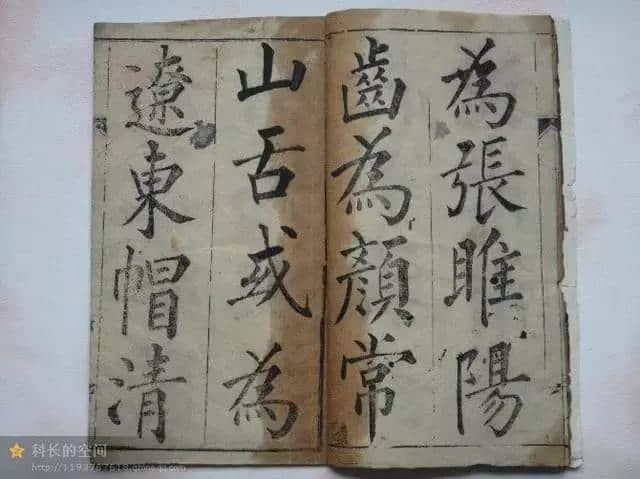 為張睢陽
齒為顏常
山舌或為
遼東帽清
科长的空间